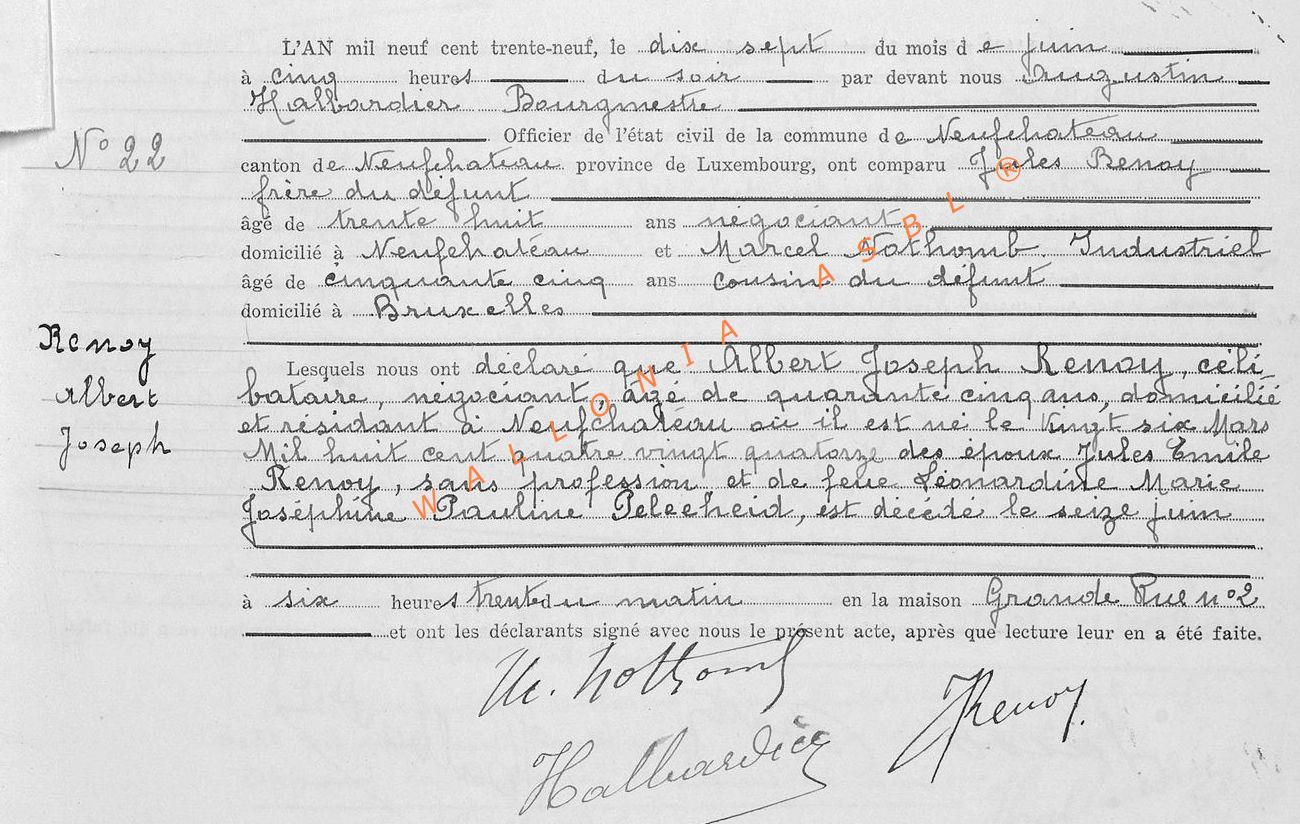 L'AN mil neuf cent trente-neuf, le dix sept du mois de juin
à cinq heures du soir par devant nous Augustin
Halbardier Bourgmestre
Officier de l'état civil de la commune de Neufchateau
N° 22
canton de Neufchateau province de Luxembourg, ont comparu Jules Renoy
frère du défunt
âgé de trente huit ans négociant
domicilié à Neufchateau et Marcel Nothomb Industriel
âgé de cinquante cinq ans cousin du défunt
domicilié à Bruxelles
Renoy
Albert
Joseph
Lesquels nous ont déclaré que Albert Joseph Renoy, céli-
bataire, négociant, âgé de quarante cinq ans, domicilié
et résidant à Neufchateau où il est né le Vingt six Mars
Mil huit cent quatre vingt quatorze des époux Jules Emile
Renoy, sans profession et de feue Léonardine Marie
Joséphine Pauline Pelecheid, est décédé le seize juin
à six heures trente du matin en la maison Grande Rue n°2
et ont les déclarants signé avec nous le présent acte, après que lecture leur en a été faite.
M. Nothomb
JRenoy.
Halbardier
WALLONIA ASBL ®